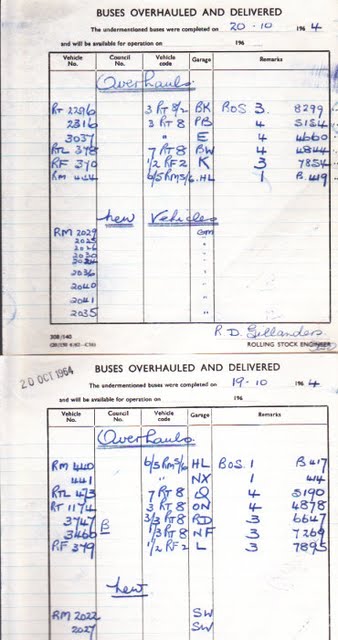 BUSES OVERHAULED AND DELIVERED
The undermentioned buses were completed on 20-10 1964
and will be available for operation on 196
Vehicle No. Council No. Vehicle code Garage Remarks
Overhauls
RT 2296 3 RT 8/2 BK BOS 3. 8299
2316 3 RT 8 PB 4 5154
3037 " E 4 4660
RTL 378 7 RT 8 BW 4 4844
RF 370 1/2 RF 2 K 3 7854
RM 444 6/5 RM5/6 HL 1 B.419
New Vehicles
RM 2029 GM
2025 "
2030 "
2036 "
2040 "
2041 "
2035 "
R. D. Gillanders
208/140 ROLLING STOCK ENGINEER
20 OCT 1964
BUSES OVERHAULED AND DELIVERED
The undermentioned buses were completed on 19-10 1964
and will be available for operation on 196
Vehicle No. Council No. Vehicle code Garage Remarks
Overhauls
RM 440 6/5 RM5/6 HL BOS. 1 B417
441 " NX 1 414
RTL 473 7 RT 8 Q 4 5190
RT 1174 3 RT 8 ON 4 4878
3747 B 3/3 RT 8 RD 3 6647
3460 1/3 RT 8 NF 3 7269
RF 379 1/2 RF 2 L 3 7895
New
RM 2022 SW
2027 SW